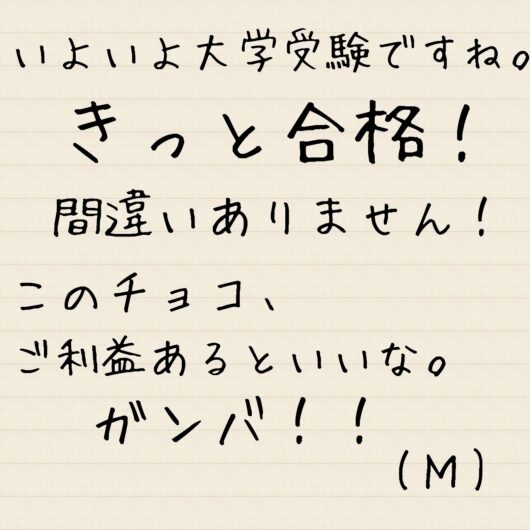 いよいよ大学受験ですね。
きっと合格！
間違いありません！
このチョコ、
ご利益あるといいな。
ガンバ！！
（M）